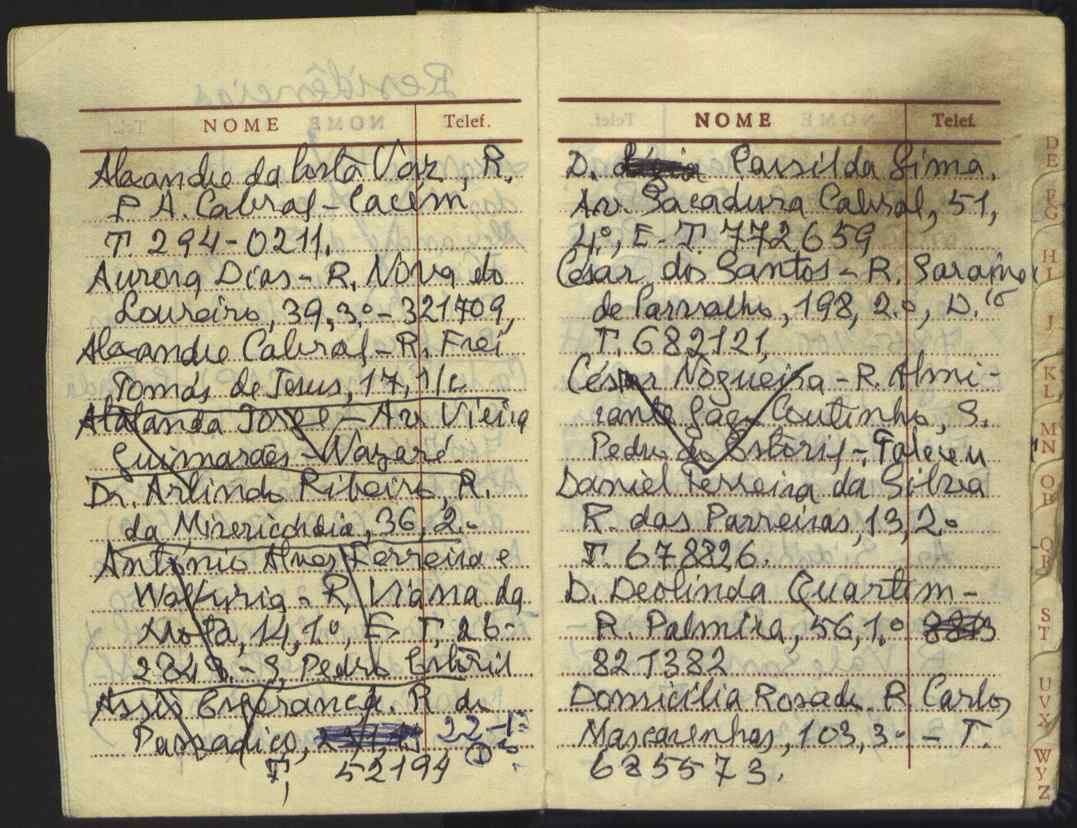 NOME Telef.
Alexandre da Costa Vaz, R.
P A. Cabral - Cacém
T. 294-0211.
Aurora Dias - R. Nova do
Loureiro, 39, 3.º - 321709,
Alexandre Cabral - R. Frei
Tomás de Jesus, 17, 1/c
Jorge - Av. Vieira
Guimarães - Nazaré
Dr. Arlindo Ribeiro, R.
da Misericórdia, 36, 2.º
António Alves Ferreira e
Walkyria - R. Viana da
Mota, 14, 1.º, E. T. 26-
S. Pedro Estoril
Assis Esperança. R. do
Passadiço, 22-1.º
T, 52194
NOME Telef.
D. Cassilda Lima.
Av. Sacadura Cabral, 51,
4.º, E - T 772659
César dos Santos - R. Saraiva
de Carvalho, 198, 2.º, D.to
T. 682121,
César Nogueira - R. Almi-
rante Gago Coutinho, S.
Pedro do Estoril - Faleceu
Daniel Ferreira da Silva
R. das Parreiras, 13, 2.º
T. 678826.
D. Deolinda Quartim -
R. Palmira, 56, 1.º
821382
Domicília Rosado. R. Carlos
Mascarenhas, 103, 3.º - T.
685573.
D
E
F
G
H
I
J
K
L
M
N
O
P
Q
R
S
T
U
V
X
W
Y
Z